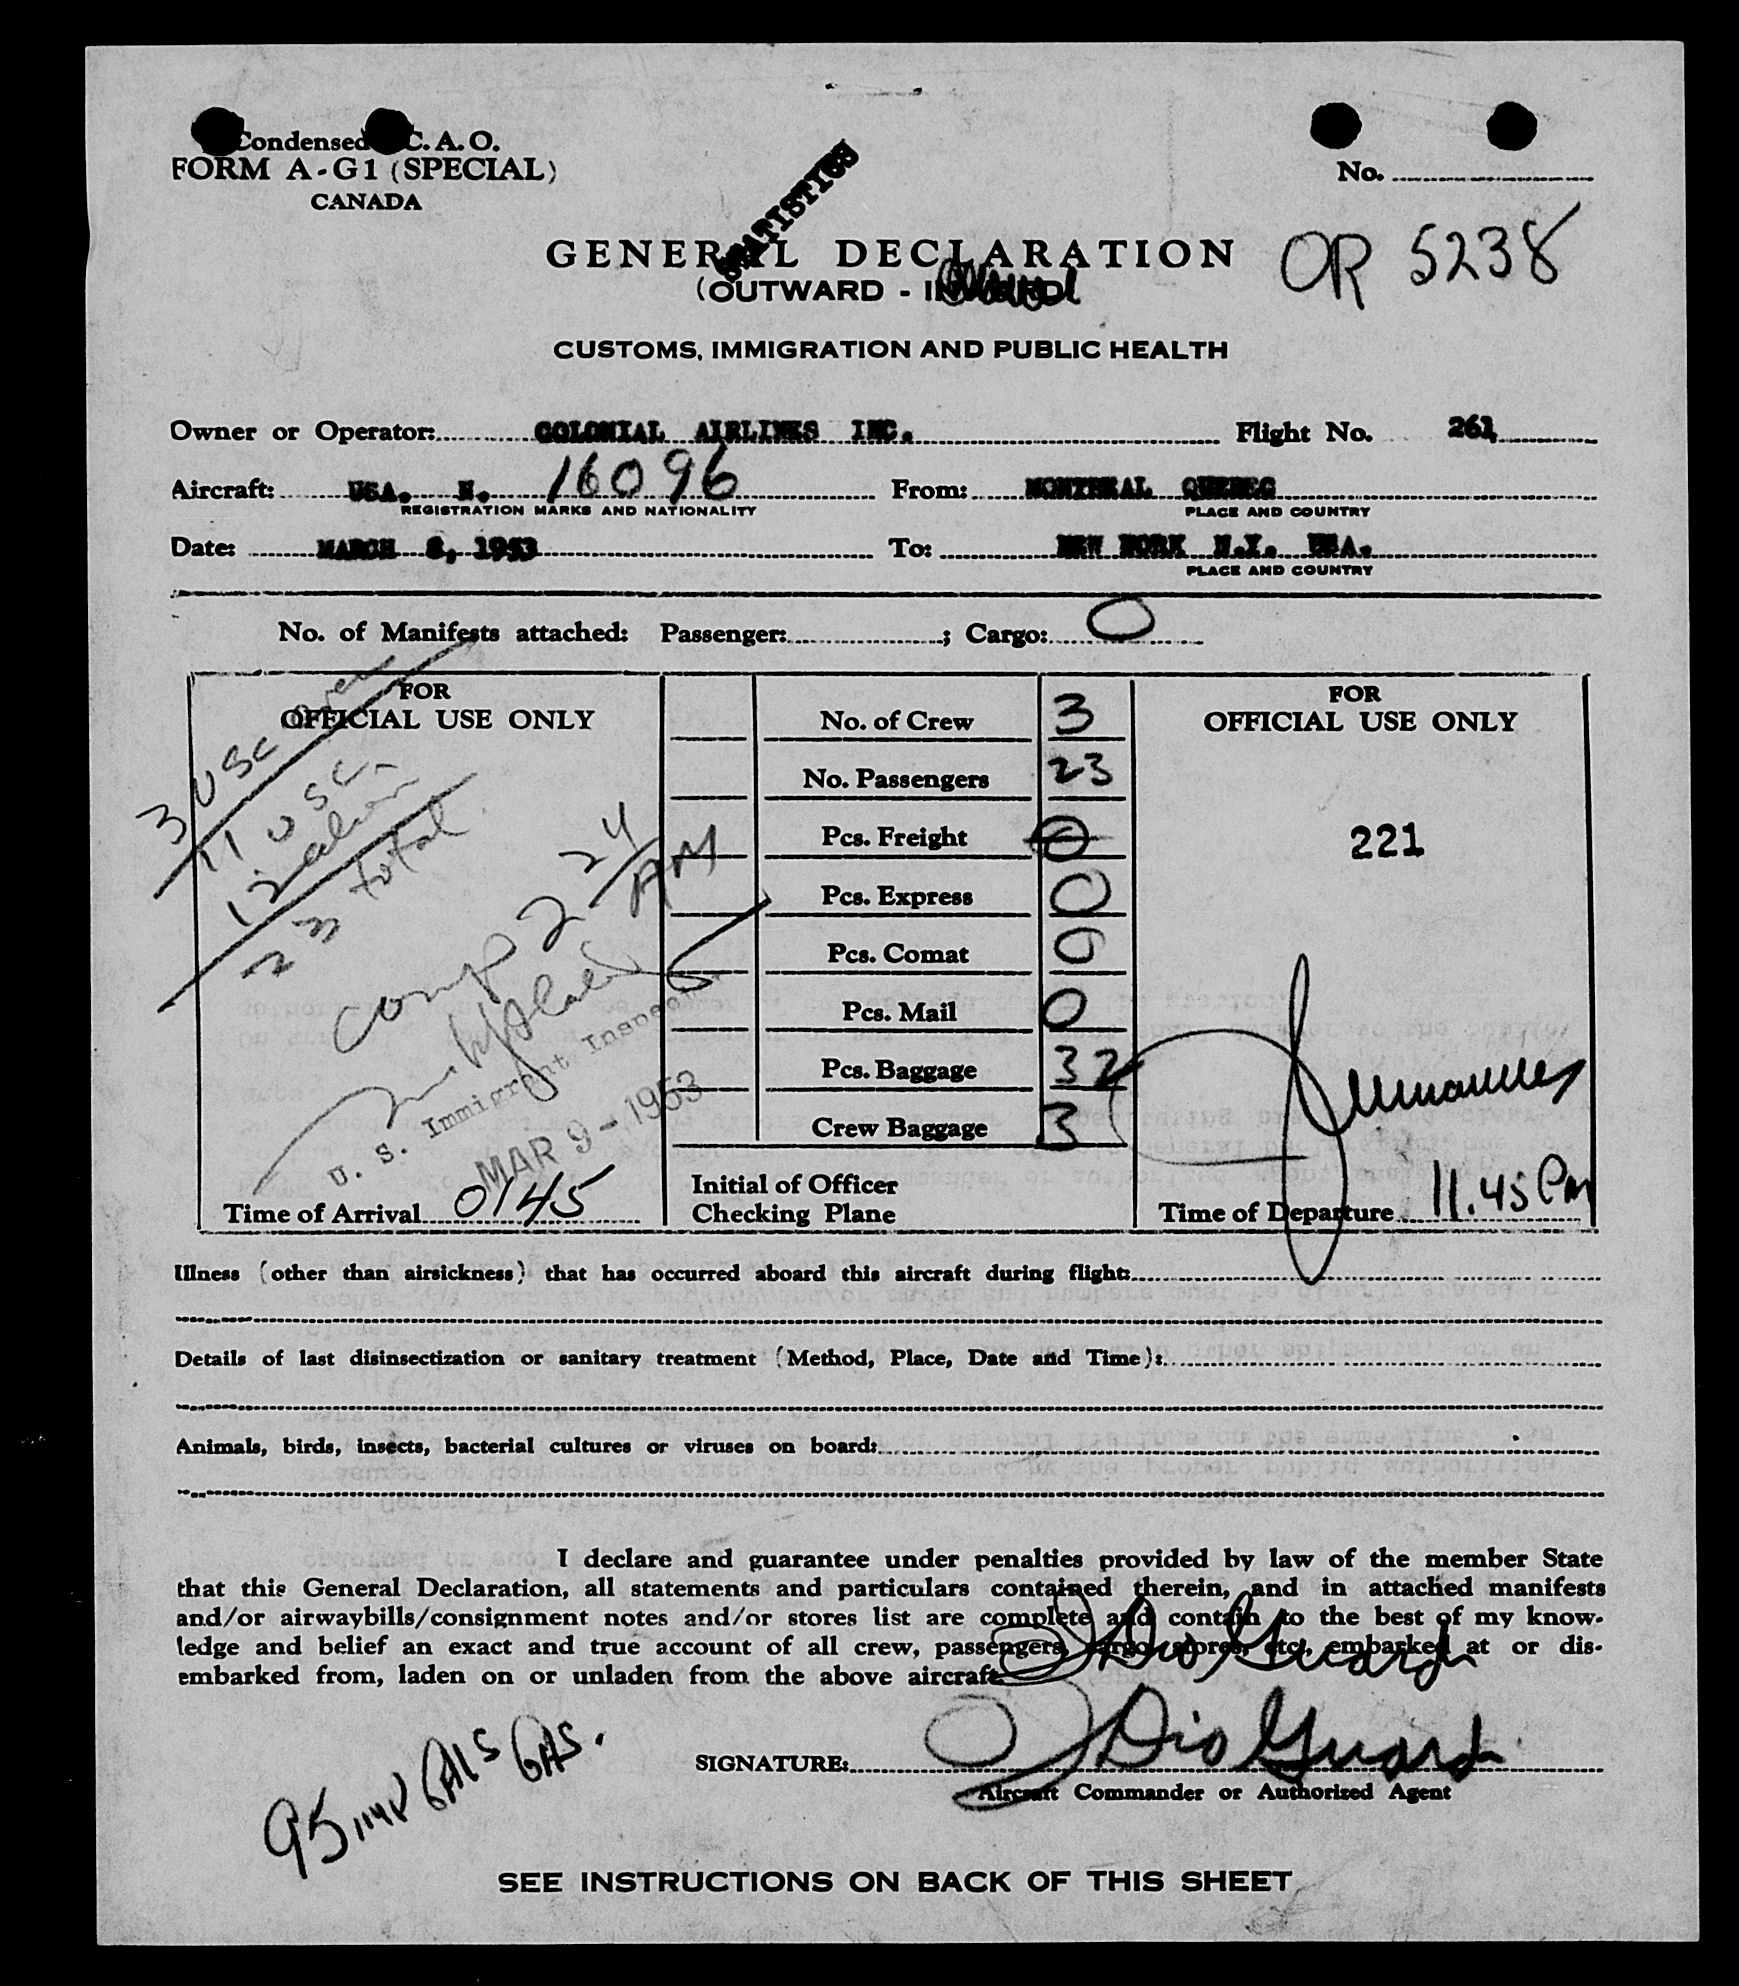 Condensed C. A. O.
FORM A - G1 (SPECIAL)
CANADA
No.
STATISTICS
GENERAL DECLARATION
OR 5238
(OUTWARD - INWARD)
CUSTOMS, IMMIGRATION AND PUBLIC HEALTH
Owner or Operator: COLONIAL AIRLINES INC. Flight No. 261
Aircraft: USA. N. 16096 From: MONTREAL QUEBEC
REGISTRATION MARKS AND NATIONALITY PLACE AND COUNTRY
Date: MARCH 8, 1953 To: NEW YORK N.Y. USA.
PLACE AND COUNTRY
No. of Manifests attached: Passenger: ; Cargo: 0
FOR
OFFICIAL USE ONLY
3 USC crew
11 USC
12 alien
23 total
comp 2 24/ AM
U. S. Immigrant Inspector
MAR 9 - 1953
Time of Arrival 0145
No. of Crew 3
No. Passengers 23
Pcs. Freight 0
Pcs. Express 0
Pcs. Comat 0
Pcs. Mail 0
Pcs. Baggage 32
Crew Baggage 3
Initial of Officer
Checking Plane
FOR
OFFICIAL USE ONLY
221
Time of Departure 11.45 PM
Illness (other than airsickness) that has occurred aboard this aircraft during flight:
Details of last disinsectization or sanitary treatment (Method, Place, Date and Time):
Animals, birds, insects, bacterial cultures or viruses on board:
I declare and guarantee under penalties provided by law of the member State
that this General Declaration, all statements and particulars contained therein, and in attached manifests
and/or airwaybills/consignment notes and/or stores list are complete and contain to the best of my know-
ledge and belief an exact and true account of all crew, passengers, cargo, stores, etc., embarked at or dis-
embarked from, laden on or unladen from the above aircraft.
J Dio Guardi
SIGNATURE: J Dio Guardi
Aircraft Commander or Authorized Agent
95 IMP GALS GAS.
SEE INSTRUCTIONS ON BACK OF THIS SHEET